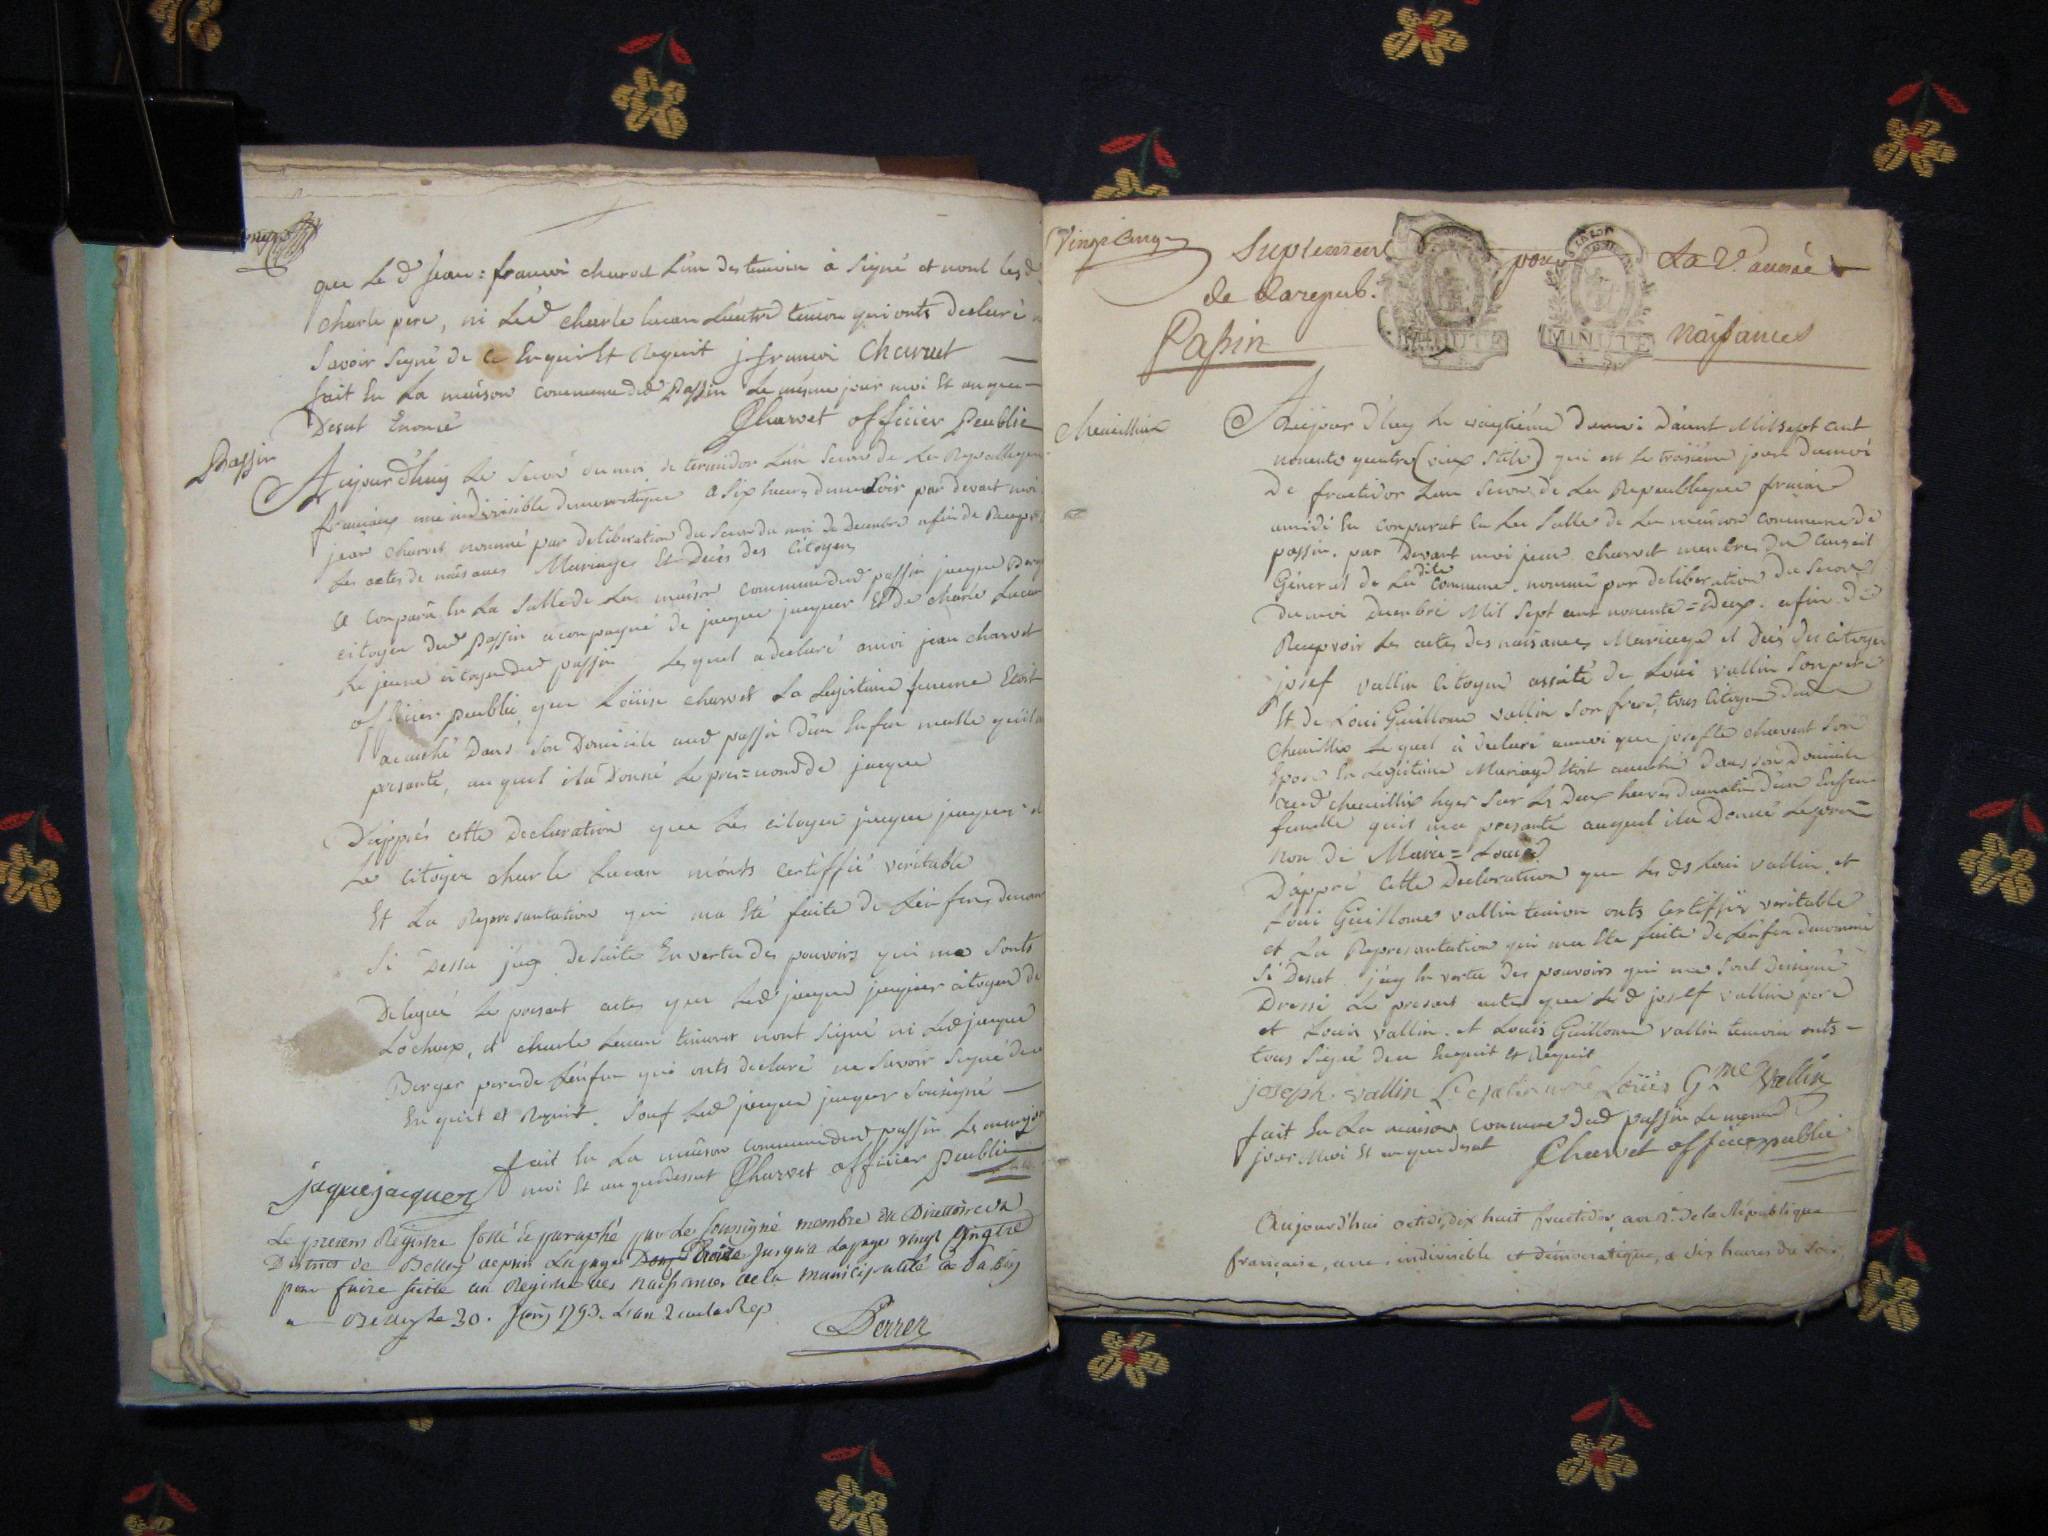 que Led Jean = francoi charvet L'un des temion à Signé et nont les d
charle pere, ni Led charle lucan L'eutre temion qui onts declaré n
Savoir Signé de ce Enquit Et Requit j. francoi Charvet
fait En La maison commune dud Passin Le mesme jour moi Et an que
Desut Enoncé Charvet officier Peublic
Passin
Aujourd'huij Le Second du moi de termidor L'an Second de La Repeublique
francaise une indivisible democratique a Six heures du Soir par devant moi
jean charvet nommé par deliberation du Second du moi de Decembre afin de Recep
Les actes de naisances Mariages Et Decés des Citoyens
a Conparû En La Salle de La maison commune dud passin jacque Berg
citoyen dud Passin aconpagné de jacque jacquer Et de charle Lucan
Le jeune citoyen dud passin Lequel a declaré a moi jean charvet
officier peublic, que Loüise charvet La Legitime femme Etoit
acouché Dans Son Domicile aud passin d'un Enfan malle qu'il m
presanté, auquel il a Donné Le pres=nond de jacque
D'apprés cette declaration que Les citoyen jacque jacquer et
Le citoyen charle Lucan m'onts certiffié veritable
Et La Representation qui ma Eté faite de L'enfens denom
Si Dessu j'ag de Suite En vertu des pouvoirs qui me Sonts
Delegué Le present actes que Led jacque jacquer citoyen de
Lochieux, et charle Lucan n'ont Signé ni Led jacque
Berger pere de L'enfan qui onts declaré ne Savoir Signé de ce
Enquit et Requit. Souf Led jacque jacquer Sousigné
fait En La maison commune dud passin Le mesme jour
moi Et an que dessut Charvet officier Peublic
jaque jacquer
Le present Registre Cotté & paraphé par Le Soussigné membre du Directoire du
District de Belley depuis La page Douze Treize jusqu'a La page vingt quatre
pour faire Suitte au Registre des naissances de la municipalité de Passin
a Belley Le 30. 1793. L'an 2 de la Rep
Perrer
Vingt Cinq
Suplement pour La 2e. année
de la repub.
MINUTE MINUTE
Passin Naissances
Cheuillieux
Aujour d'huy Le vingtiéme du moi D'aout Mil Sept cent
nonente quatre (vieux Stile) qui est Le troisième jour du moi
De fructidor L'an Second de La Republique francaise
amidi En conparut En La Salle de La maison commune de
passin. par Devant moi jean charvet menbres du conseil
Général de La dite Commune. nommé par deliberation du Second
du moi decenbre Mil Sept cent nonente = Deux. afin de
Recepvoir Les actes des naisances Mariage et Decés des Citoyen
josef vallin Citoyen assisté de Loui vallin Son pere
Et de Loui Guillome vallin Son frere, tous Citoyen dud
Cheuillieu Lequel à declaré a moi que josefte charvet Son
Epose En Legitime Mariage Etoit acouché Dans Son Domicile
aud cheuillix hyer Sur Les Deux heures du matin D'un Enfan
femelle qu'il m'a presanté auquel il a Donné Le pre=
non de Marie = Louise
D'apprés cette Declaration que Les ds Loui vallin et
Loui Guillome vallin temion onts certiffiéz veritable
et La Representation qui ma Ete faite de L'enfan denommé
Si Desut j'ay En vertu des pouvoirs qui me Sont Designé
Dressé Le present acte que Led josef vallin pere
et Louis vallin. et Louis Guillome vallin temoin onts
tous Signé de ce Enquit Et Requit
joseph vallin Loüis Gme Vallin
fait En La maison Commune dud passin Le mesme
jour Moi Et an que desut Charvet officier publie
Aujourd'hui octidi, dix huit fructidor, an 2e. de la République
française, une, indivisible et démocratique, a dix heures du soir,